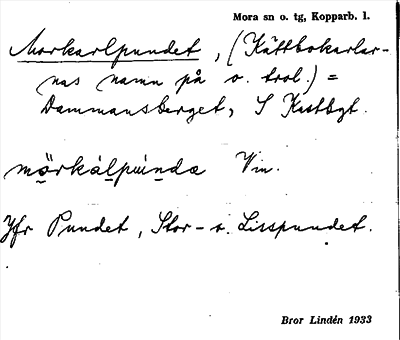 Mora sn o. tg, Kopparb. l.
Morkarlpundet, (Kättbokarlar-
nas namn på o. trol.) =
Dammansberget, S Kættbgt.
mörkálpúnda Vm.
Jfr Pundet, Stor- o. Lisspundet.
Bror Lindén 1933